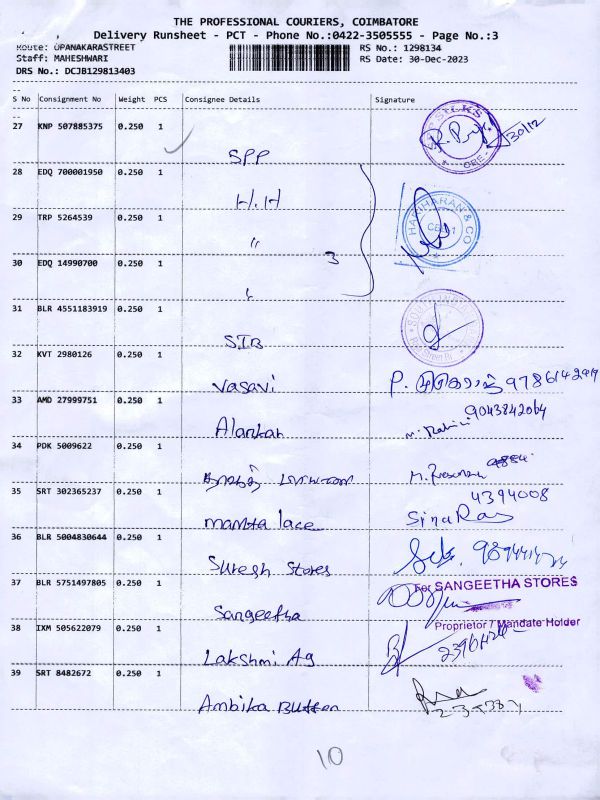 THE PROFESSIONAL COURIERS, COIMBATORE
Delivery Runsheet - PCT - Phone No.:0422-3505555 - Page No.:3
Route: OPANAKARASTREET
RS No.: 1298134
Staff: MAHESHWARI
RS Date: 30-Dec-2023
DRS No.: DCJB129813403
S No Consignment No Weight PCS Consignee Details Signature
27 KNP 507885375 0.250 1
SPP
30/12
28 EDQ 700001950 0.250 1
H.H
HARIHARAN & CO
29 TRP 5264539 0.250 1
"
3
30 EDQ 14990700 0.250 1
31 BLR 4551183919 0.250 1
SIB
32 KVT 2980126 0.250 1
Vasavi
P.
33 AMD 27999751 0.250 1
9043842064
Alankar
34 PDK 5009622 0.250 1
35 SRT 302365237 0.250 1
4394008
mamta lace
36 BLR 5004830644 0.250 1
Suresh Stores
37 BLR 5751497805 0.250 1
For SANGEETHA STORES
Sangeetha
Proprietor / Mandate Holder
38 IXM 505622079 0.250 1
Lakshmi Ag
39 SRT 8482672 0.250 1
Ambika Button
10